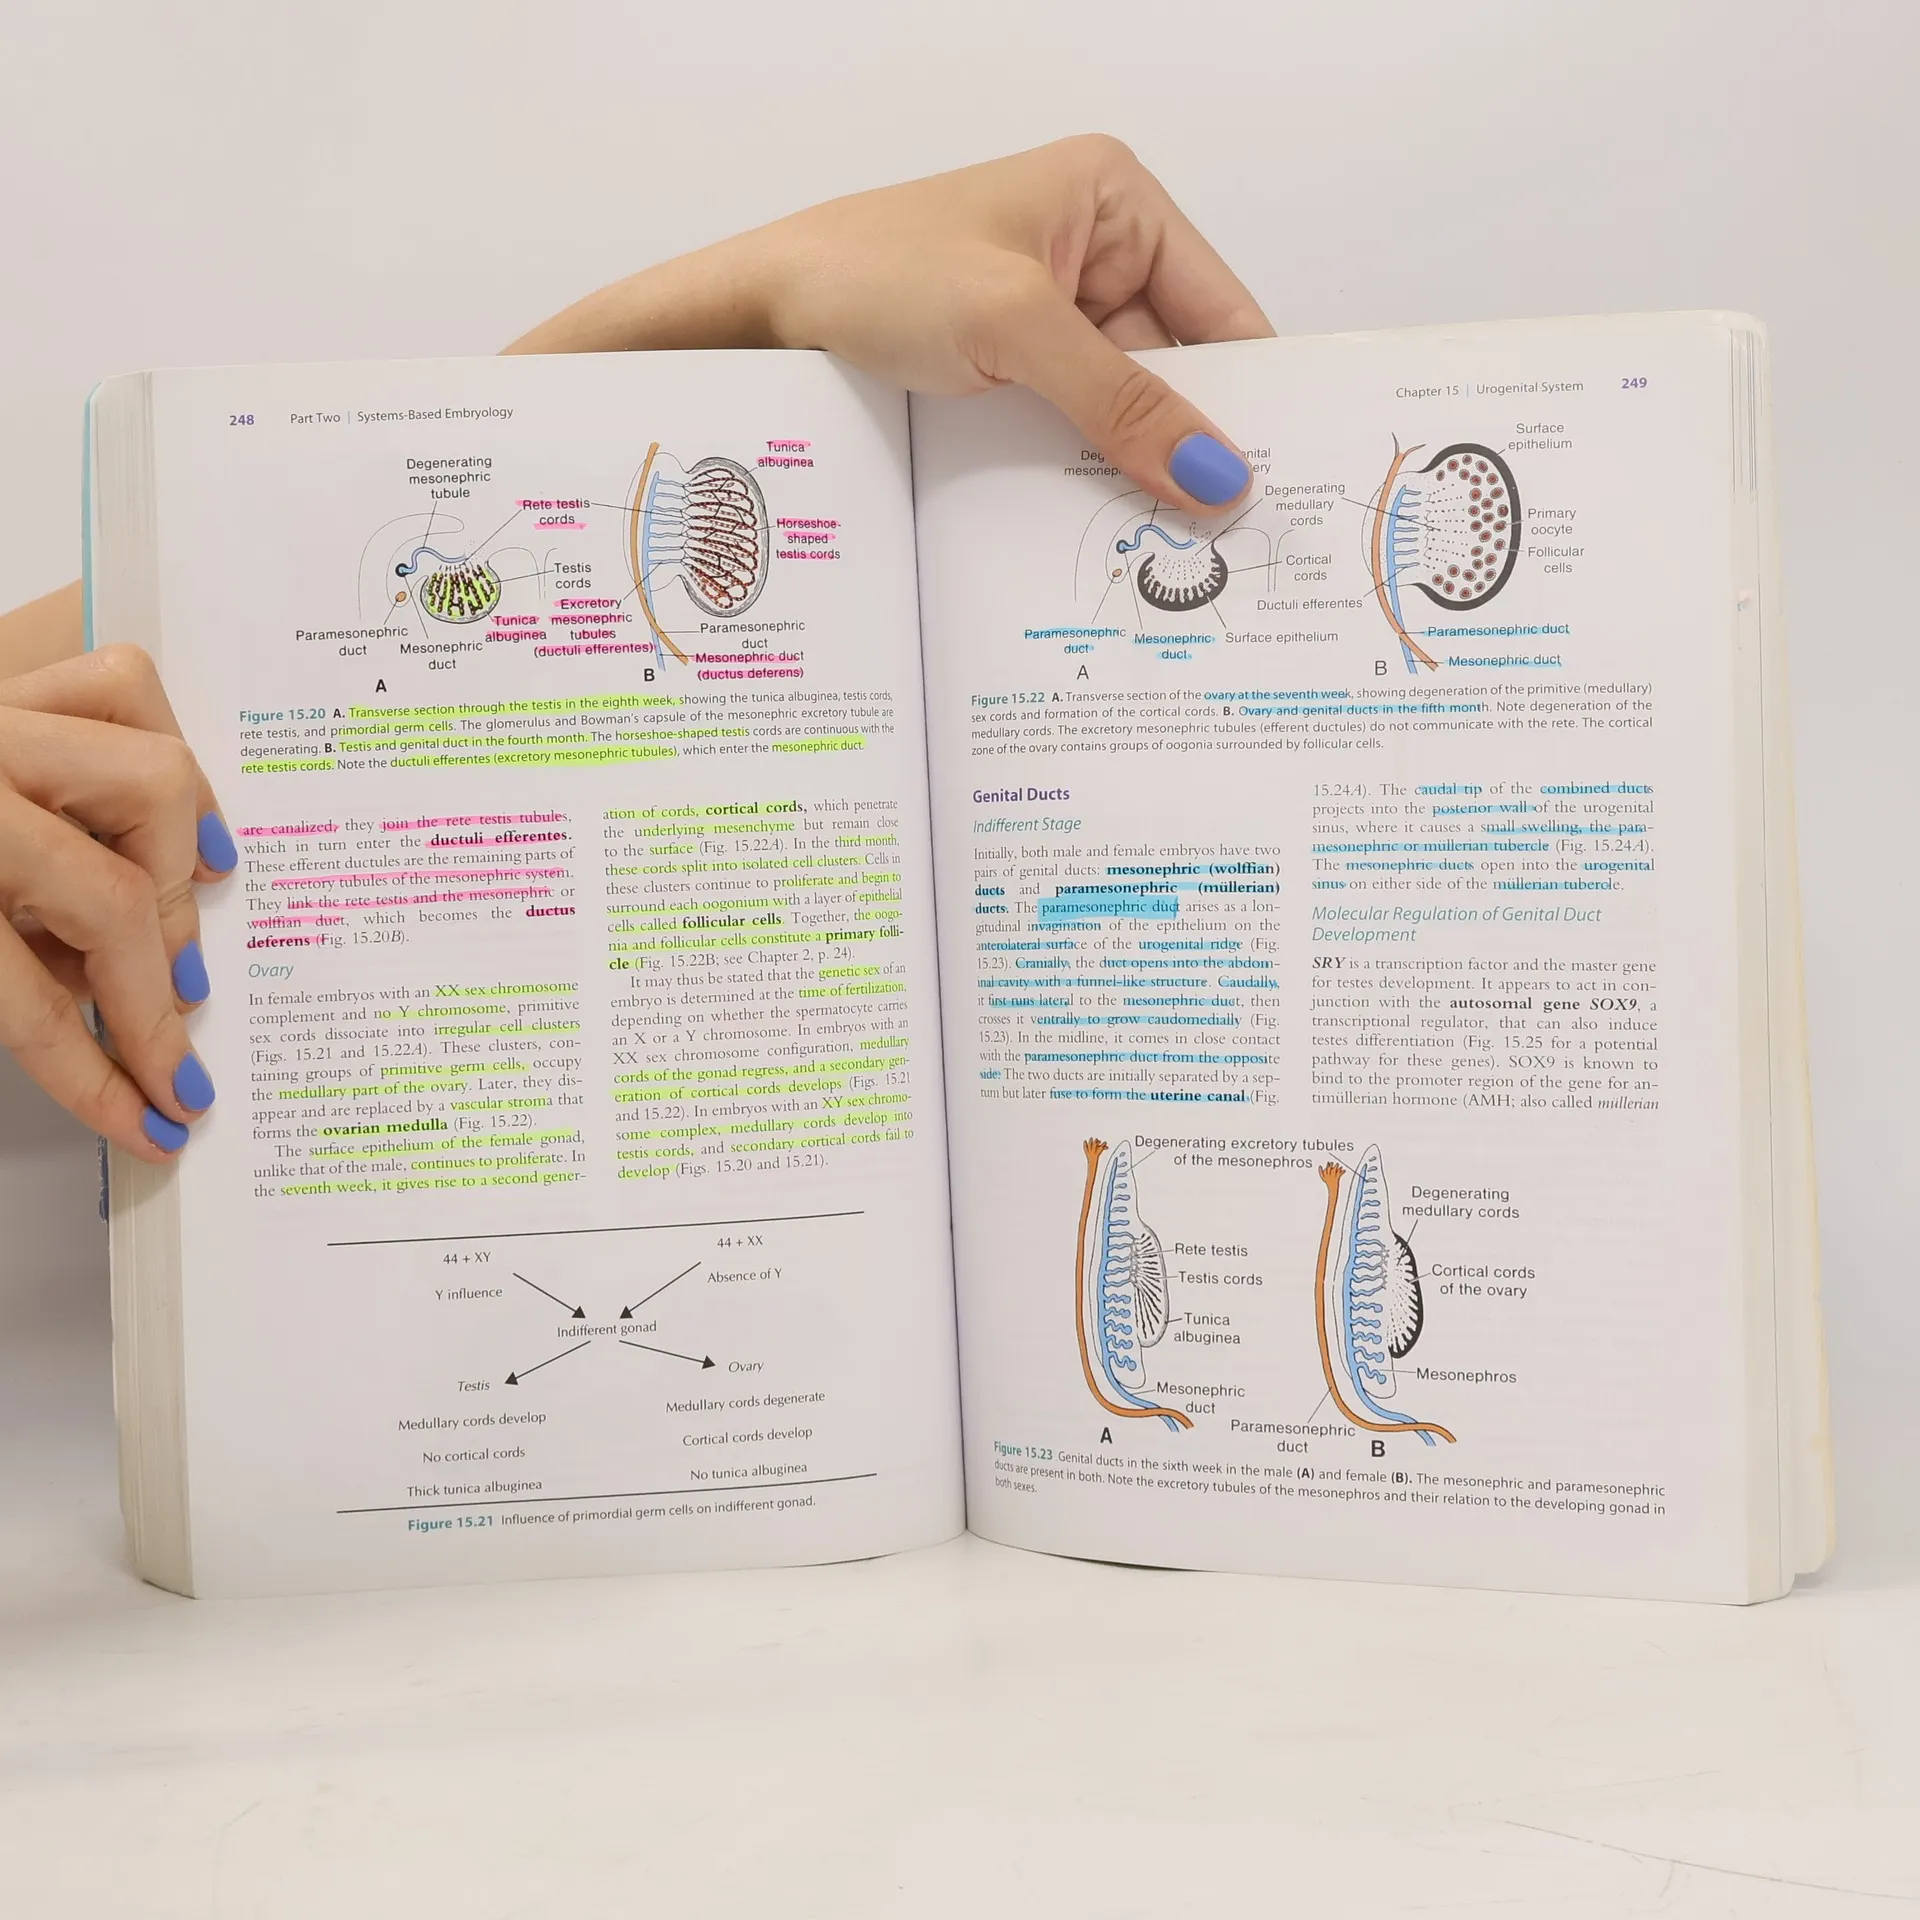 248 Part Two | Systems-Based Embryology
Degenerating
mesonephric
tubule
Rete testis
cords
Testis
cords
Tunica
albuginea
Paramesonephric
duct
Mesonephric
duct
A
Tunica
albuginea
Horseshoe-
shaped
testis cords
Excretory
mesonephric
tubules
(ductuli efferentes)
Paramesonephric
duct
Mesonephric duct
(ductus deferens)
B
Figure 15.20 A. Transverse section through the testis in the eighth week, showing the tunica albuginea, testis cords,
rete testis, and primordial germ cells. The glomerulus and Bowman's capsule of the mesonephric excretory tubule are
degenerating. B. Testis and genital duct in the fourth month. The horseshoe-shaped testis cords are continuous with the
rete testis cords. Note the ductuli efferentes (excretory mesonephric tubules), which enter the mesonephric duct.
are canalized, they join the rete testis tubules,
which in turn enter the ductuli efferentes.
These efferent ductules are the remaining parts of
the excretory tubules of the mesonephric system.
They link the rete testis and the mesonephric or
wolffian duct, which becomes the ductus
deferens (Fig. 15.20B).
Ovary
In female embryos with an XX sex chromosome
complement and no Y chromosome, primitive
sex cords dissociate into irregular cell clusters
(Figs. 15.21 and 15.22A). These clusters, con-
taining groups of primitive germ cells, occupy
the medullary part of the ovary. Later, they dis-
appear and are replaced by a vascular stroma that
forms the ovarian medulla (Fig. 15.22).
The surface epithelium of the female gonad,
unlike that of the male, continues to proliferate. In
the seventh week, it gives rise to a second gener-
ation of cords, cortical cords, which penetrate
the underlying mesenchyme but remain close
to the surface (Fig. 15.22A). In the third month,
these cords split into isolated cell clusters. Cells in
these clusters continue to proliferate and begin to
surround each oogonium with a layer of epithelial
cells called follicular cells. Together, the oogo-
nia and follicular cells constitute a primary folli-
cle (Fig. 15.22B; see Chapter 2, p. 24).
It may thus be stated that the genetic sex of an
embryo is determined at the time of fertilization,
depending on whether the spermatocyte carries
an X or a Y chromosome. In embryos with an
XX sex chromosome configuration, medullary
cords of the gonad regress, and a secondary gen-
eration of cortical cords develops (Figs. 15.21
and 15.22). In embryos with an XY sex chromo-
some complex, medullary cords develop into
testis cords, and secondary cortical cords fail to
develop (Figs. 15.20 and 15.21).
44 + XY
44 + XX
Y influence
Absence of Y
Indifferent gonad
Testis
Ovary
Medullary cords develop
Medullary cords degenerate
No cortical cords
Cortical cords develop
Thick tunica albuginea
No tunica albuginea
Figure 15.21 Influence of primordial germ cells on indifferent gonad.
Chapter 15 | Urogenital System 249
Degenerating
medullary
cords
Cortical
cords
Ductuli efferentes
Paramesonephric
duct
Mesonephric
duct
Surface epithelium
A
Surface
epithelium
Primary
oocyte
Follicular
cells
Paramesonephric duct
Mesonephric duct
B
Figure 15.22 A. Transverse section of the ovary at the seventh week, showing degeneration of the primitive (medullary)
sex cords and formation of the cortical cords. B. Ovary and genital ducts in the fifth month. Note degeneration of the
medullary cords. The excretory mesonephric tubules (efferent ductules) do not communicate with the rete. The cortical
zone of the ovary contains groups of oogonia surrounded by follicular cells.
Genital Ducts
Indifferent Stage
Initially, both male and female embryos have two
pairs of genital ducts: mesonephric (wolffian)
ducts and paramesonephric (müllerian)
ducts. The paramesonephric duct arises as a lon-
gitudinal invagination of the epithelium on the
anterolateral surface of the urogenital ridge (Fig.
15.23). Cranially, the duct opens into the abdom-
inal cavity with a funnel-like structure. Caudally,
it first runs lateral to the mesonephric duct, then
crosses it ventrally to grow caudomedially (Fig.
15.23). In the midline, it comes in close contact
with the paramesonephric duct from the opposite
side. The two ducts are initially separated by a sep-
tum but later fuse to form the uterine canal (Fig.
15.24A). The caudal tip of the combined ducts
projects into the posterior wall of the urogenital
sinus, where it causes a small swelling, the para-
mesonephric or müllerian tubercle (Fig. 15.24A).
The mesonephric ducts open into the urogenital
sinus on either side of the müllerian tubercle.
Molecular Regulation of Genital Duct
Development
SRY is a transcription factor and the master gene
for testes development. It appears to act in con-
junction with the autosomal gene SOX9, a
transcriptional regulator, that can also induce
testes differentiation (Fig. 15.25 for a potential
pathway for these genes). SOX9 is known to
bind to the promoter region of the gene for an-
timüllerian hormone (AMH; also called müllerian
Degenerating excretory tubules
of the mesonephros
Rete testis
Testis cords
Tunica
albuginea
Mesonephric
duct
A
Degenerating
medullary cords
Cortical cords
of the ovary
Mesonephros
Paramesonephric
duct
B
Figure 15.23 Genital ducts in the sixth week in the male (A) and female (B). The mesonephric and paramesonephric
ducts are present in both. Note the excretory tubules of the mesonephros and their relation to the developing gonad in
both sexes.